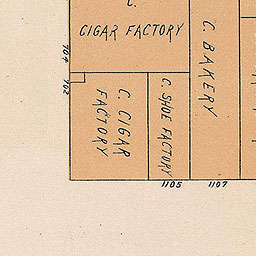 C.
CIGAR FACTORY
C. BAKERY
704
702
C. CIGAR
FACTORY
C. SHOE FACTORY
1105
1107